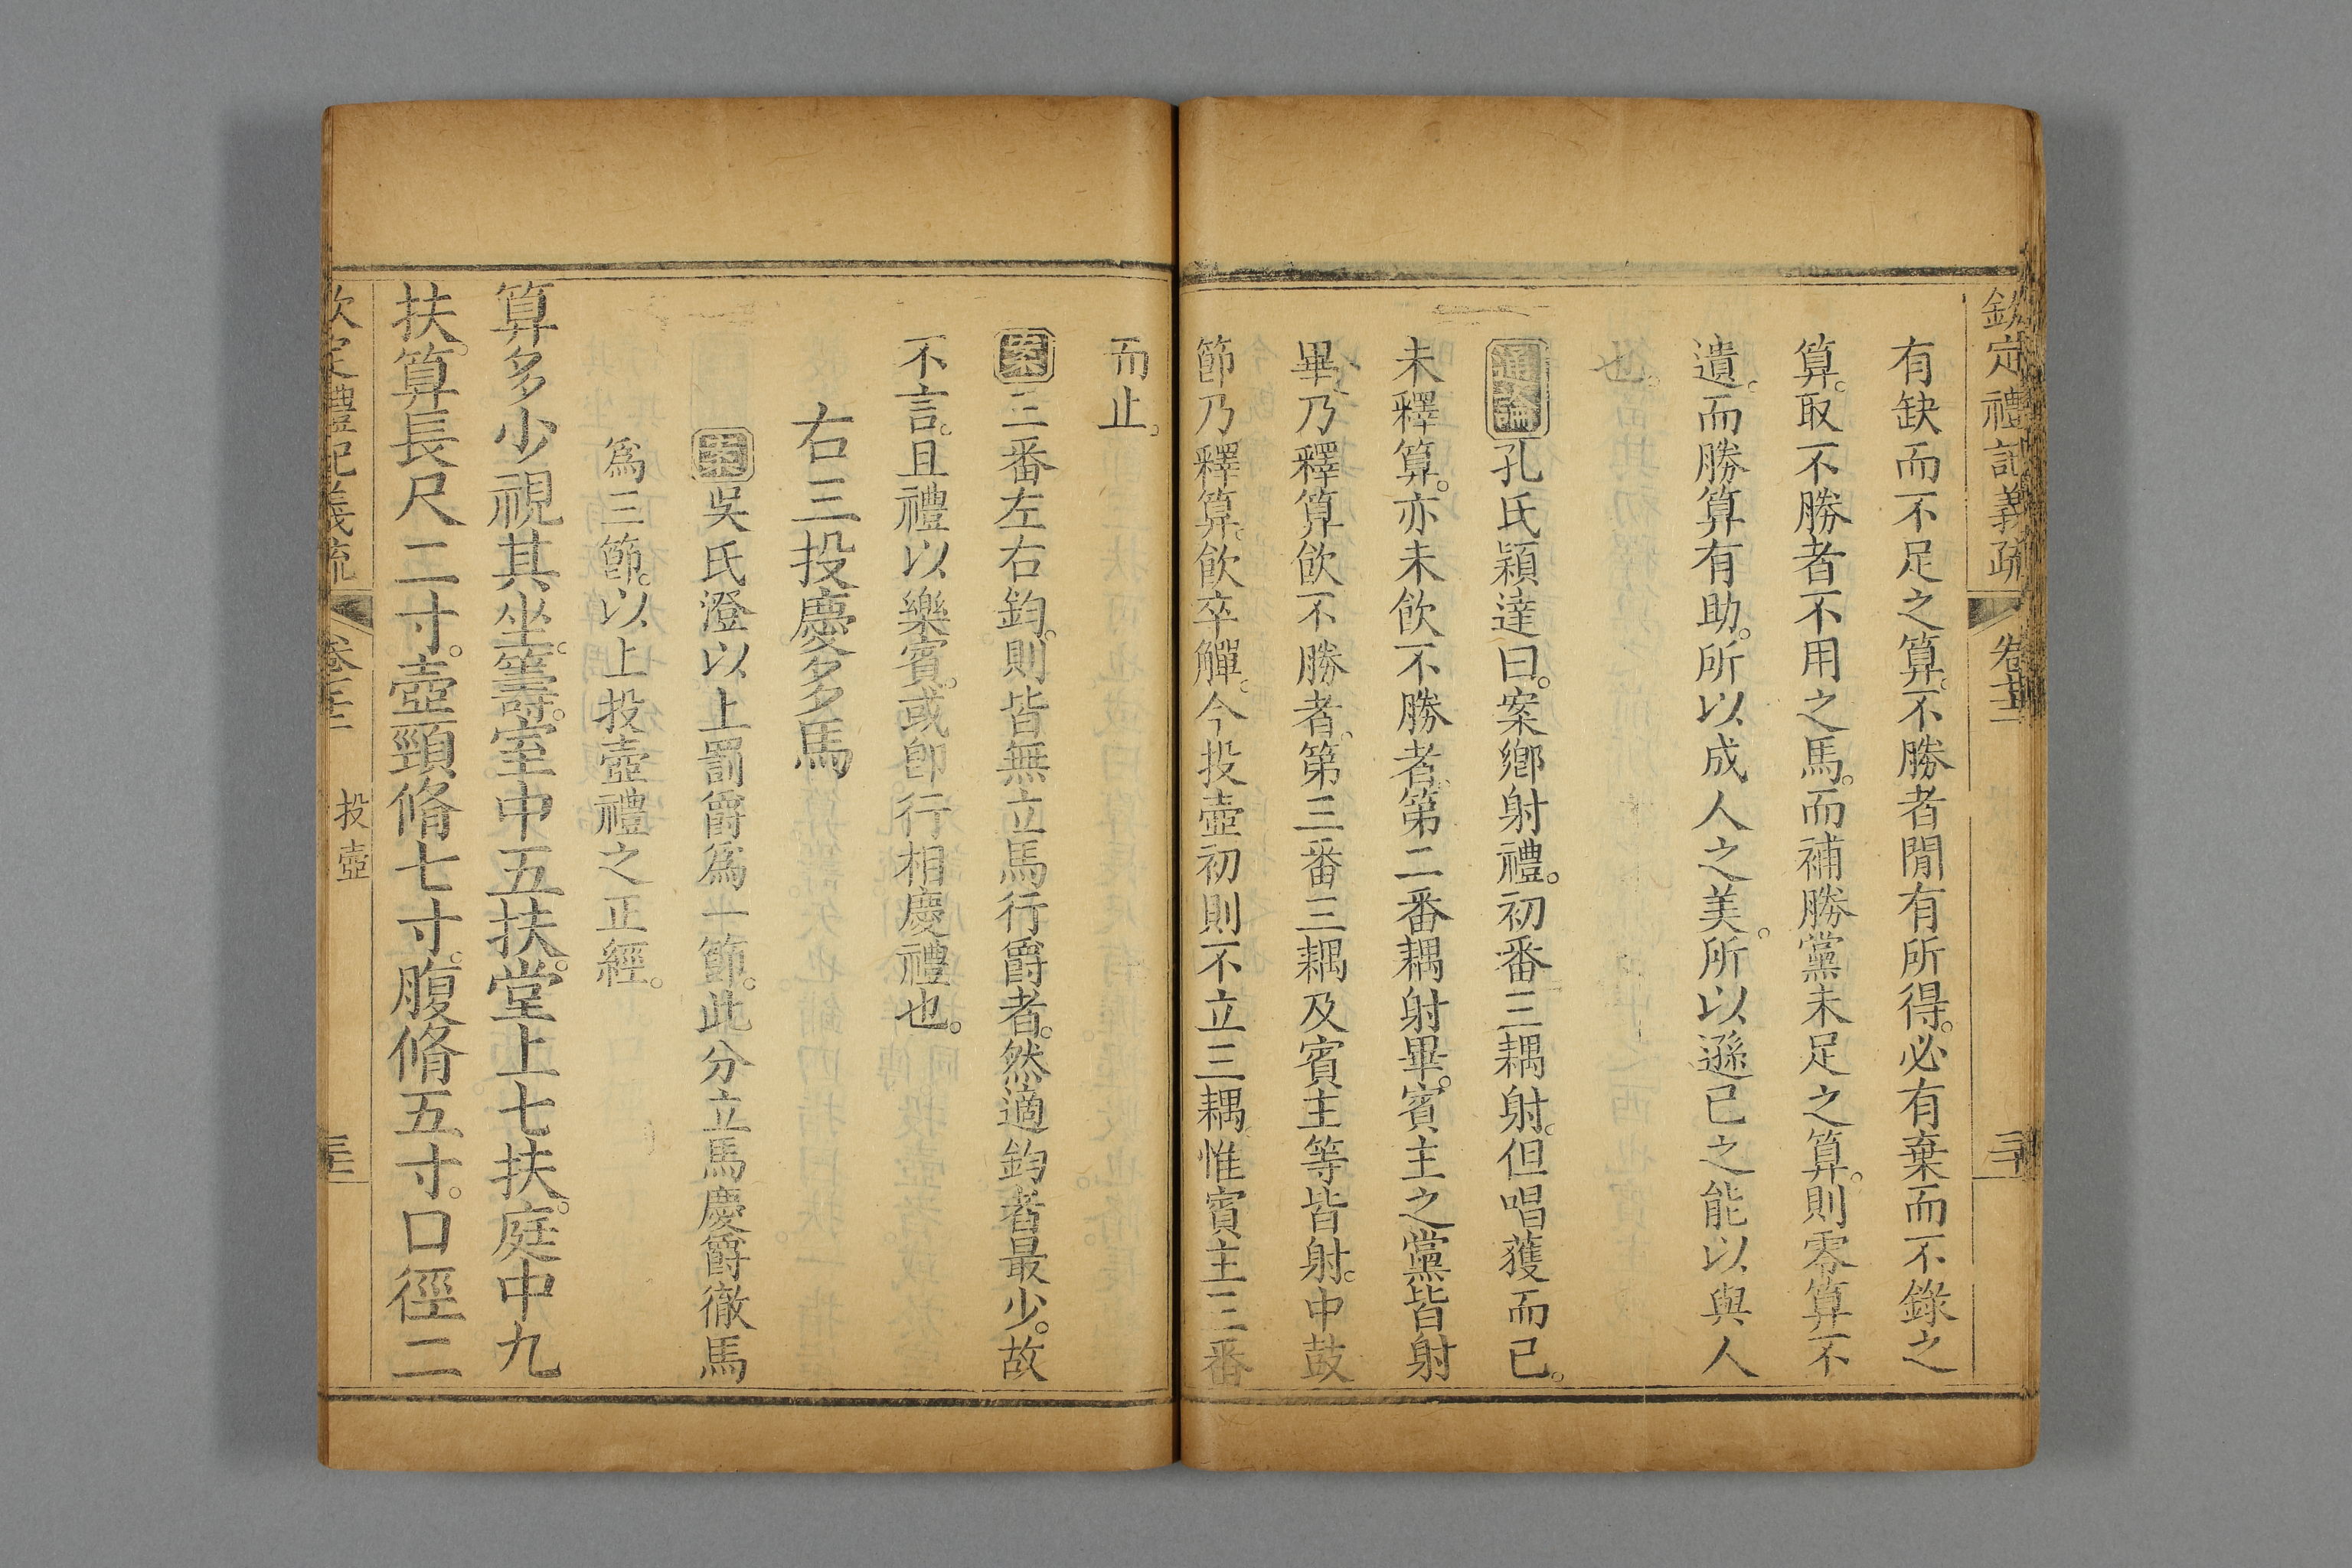 欽定禮記義疏 卷 三
有缺而不足之算。不勝者閒有所得。必有棄而不錄之
算。取不勝者不用之馬。而補勝黨未足之算。則零算不
遺。而勝算有助。所以成人之美。所以遜己之能以與人
也。
通論孔氏穎達曰。案鄉射禮。初番三耦射。但唱獲而已。
未釋算。亦未飲不勝者。第二番耦射畢。賓主之黨皆射
畢。乃釋算飲不勝者。第三番三耦及賓主等皆射。中鼓
節乃釋算。飲卒觶。今投壺初則不立三耦。惟賓主三番
而止。
案三番左右鈞。則皆無立馬行爵者。然適鈞者最少。故
不言。且禮以樂賓。或卽行相慶禮也。
右三投慶多馬
案吳氏澄以上罰爵爲一節。此分立馬慶爵徹馬
爲三節。以上投壺禮之正經。
算多少視其坐。籌。室中五扶。堂上七扶。庭中九
扶。算長尺二寸。壺頸脩七寸。腹脩五寸。口徑二
欽定禮記義疏 卷 投壺